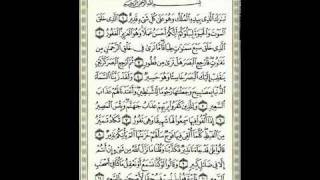 بِسْمِ اللَّهِ الرَّحْمَٰنِ الرَّحِيمِ
تَبَٰرَكَ الَّذِي بِيَدِهِ الْمُلْكُ وَهُوَ عَلَىٰ كُلِّ شَيْءٍ قَدِيرٌ الَّذِي خَلَقَ
الْمَوْتَ وَالْحَيَوٰةَ لِيَبْلُوَكُمْ أَيُّكُمْ أَحْسَنُ عَمَلًا وَهُوَ الْعَزِيزُ الْغَفُورُ
الَّذِي خَلَقَ سَبْعَ سَمَٰوَٰتٍ طِبَاقًا مَا تَرَىٰ فِي خَلْقِ الرَّحْمَٰنِ مِنْ
تَفَٰوُتٍ فَارْجِعِ الْبَصَرَ هَلْ تَرَىٰ مِنْ فُطُورٍ ثُمَّ ارْجِعِ الْبَصَرَ كَرَّتَيْنِ
يَنْقَلِبْ إِلَيْكَ الْبَصَرُ خَاسِئًا وَهُوَ حَسِيرٌ وَلَقَدْ زَيَّنَّا السَّمَاءَ
الدُّنْيَا بِمَصَٰبِيحَ وَجَعَلْنَٰهَا رُجُومًا لِلشَّيَٰطِينِ وَأَعْتَدْنَا لَهُمْ عَذَابَ
السَّعِيرِ وَلِلَّذِينَ كَفَرُوا بِرَبِّهِمْ عَذَابُ جَهَنَّمَ وَبِئْسَ الْمَصِيرُ
إِذَا أُلْقُوا فِيهَا سَمِعُوا لَهَا شَهِيقًا وَهِيَ تَفُورُ تَكَادُ تَمَيَّزُ
مِنَ الْغَيْظِ كُلَّمَا أُلْقِيَ فِيهَا فَوْجٌ سَأَلَهُمْ خَزَنَتُهَا أَلَمْ يَأْتِكُمْ نَذِيرٌ
قَالُوا بَلَىٰ قَدْ جَاءَنَا نَذِيرٌ فَكَذَّبْنَا وَقُلْنَا مَا نَزَّلَ اللَّهُ مِنْ شَيْءٍ إِنْ أَنْتُمْ
إِلَّا فِي ضَلَٰلٍ كَبِيرٍ وَقَالُوا لَوْ كُنَّا نَسْمَعُ أَوْ نَعْقِلُ مَا كُنَّا فِي أَصْحَٰبِ